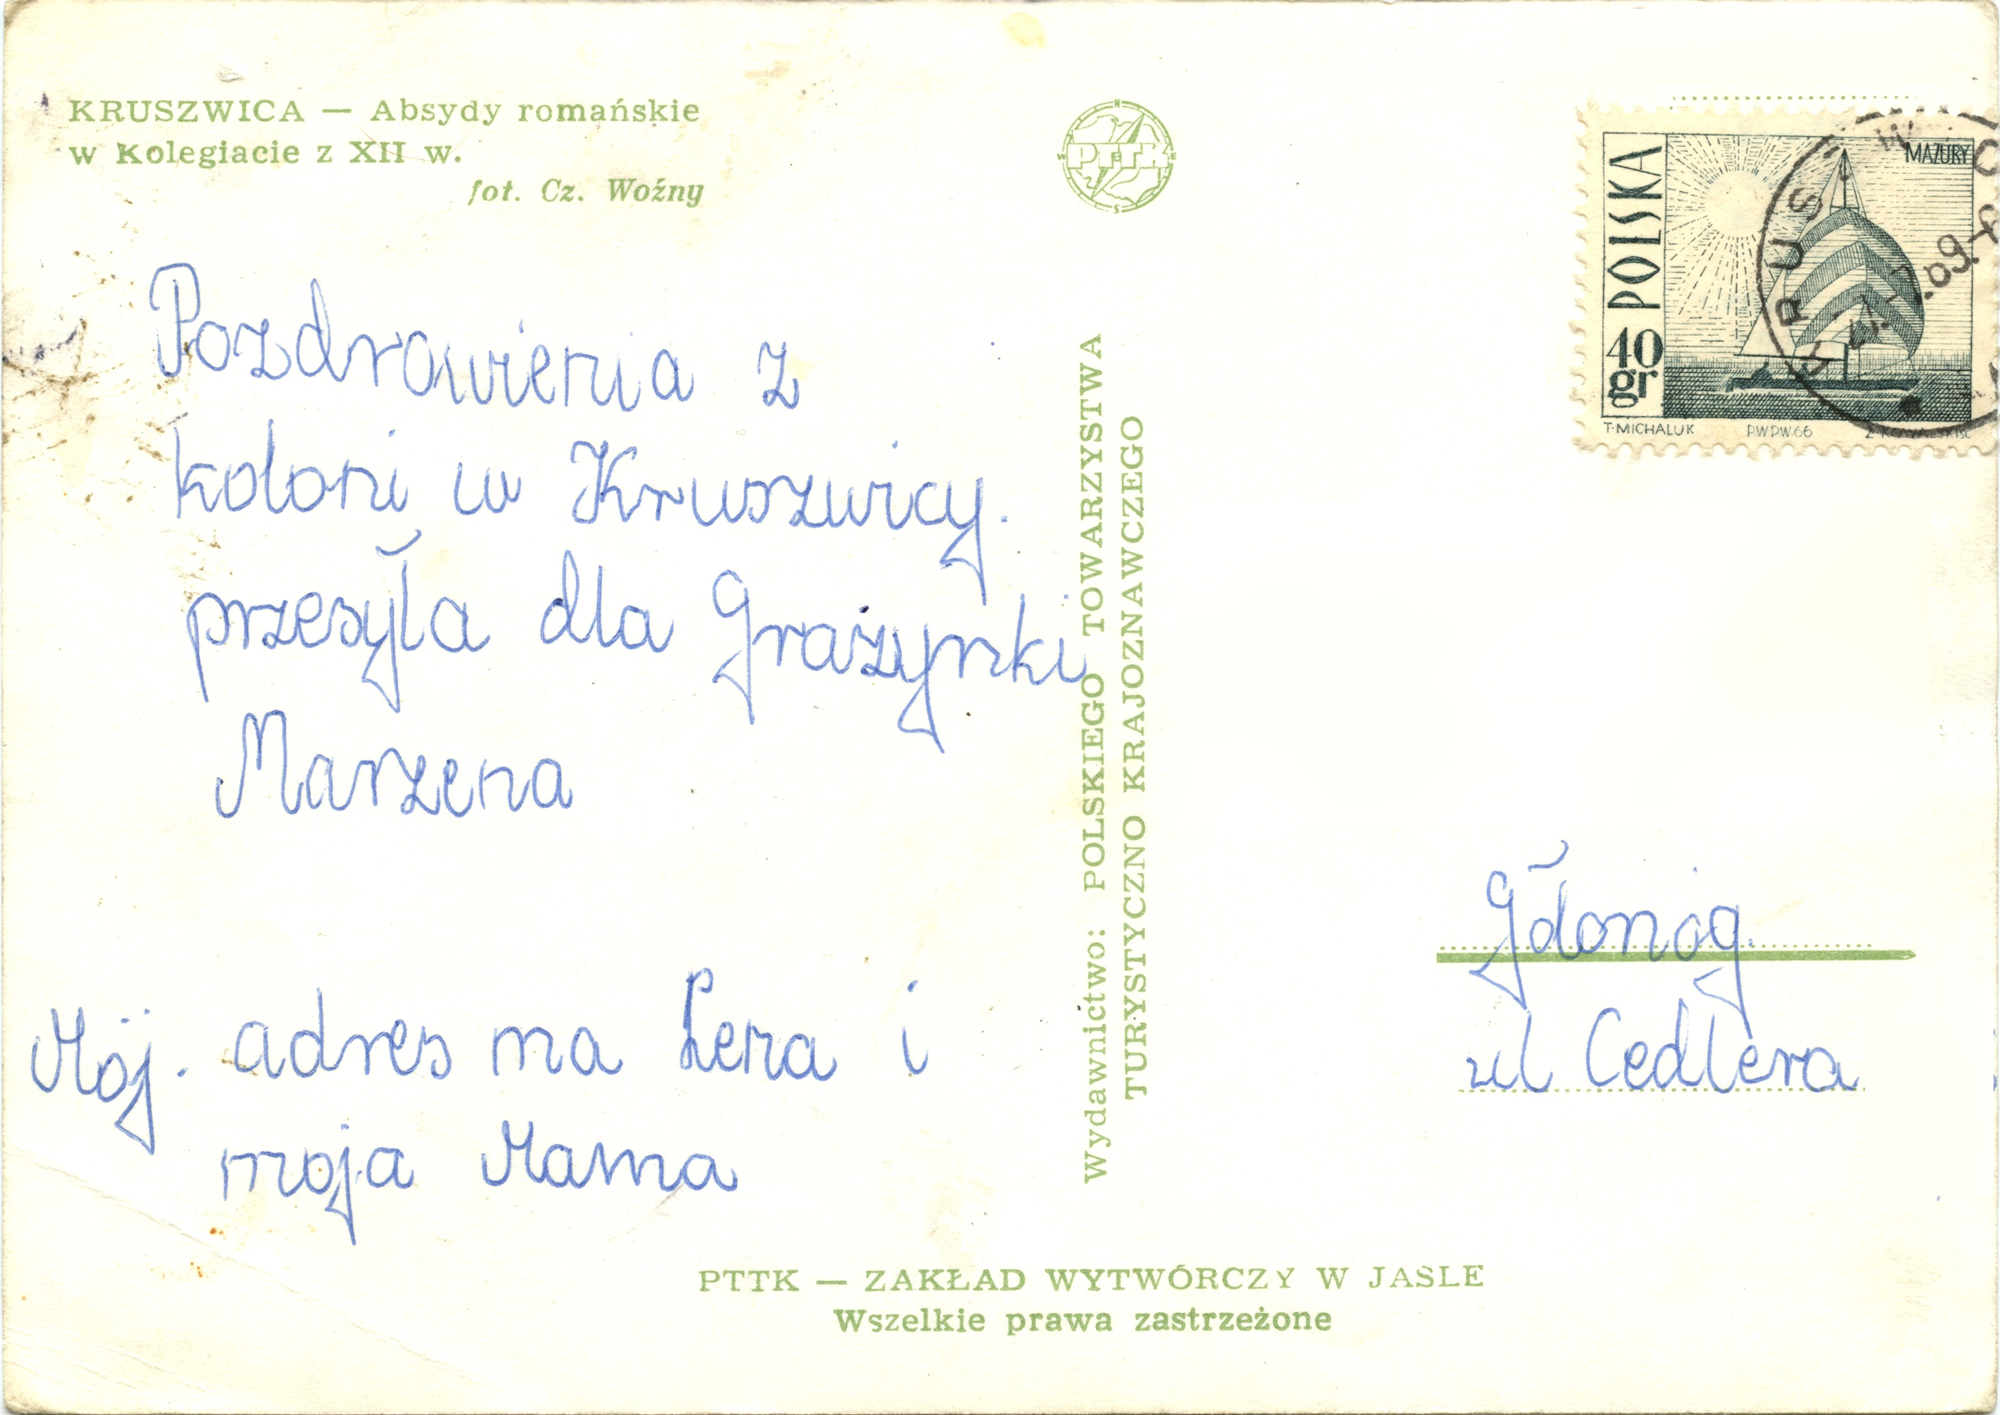 KRUSZWICA — Absydy romańskie
w Kolegiacie z XII w.
fot. Cz. Woźny
Pozdrowienia z
koloni w Kruszwicy.
przesyła dla Grażynki
Marzena
Mój. adres ma Lena i
moja Mama
Wydawnictwo: POLSKIEGO TOWARZYSTWA
TURYSTYCZNO KRAJOZNAWCZEGO
PTTK
POLSKA
40
gr
MAZURY
T·MICHALUK PWPW.66
Gołonóg.
ul Cedlera
PTTK — ZAKŁAD WYTWÓRCZY W JAŚLE
Wszelkie prawa zastrzeżone